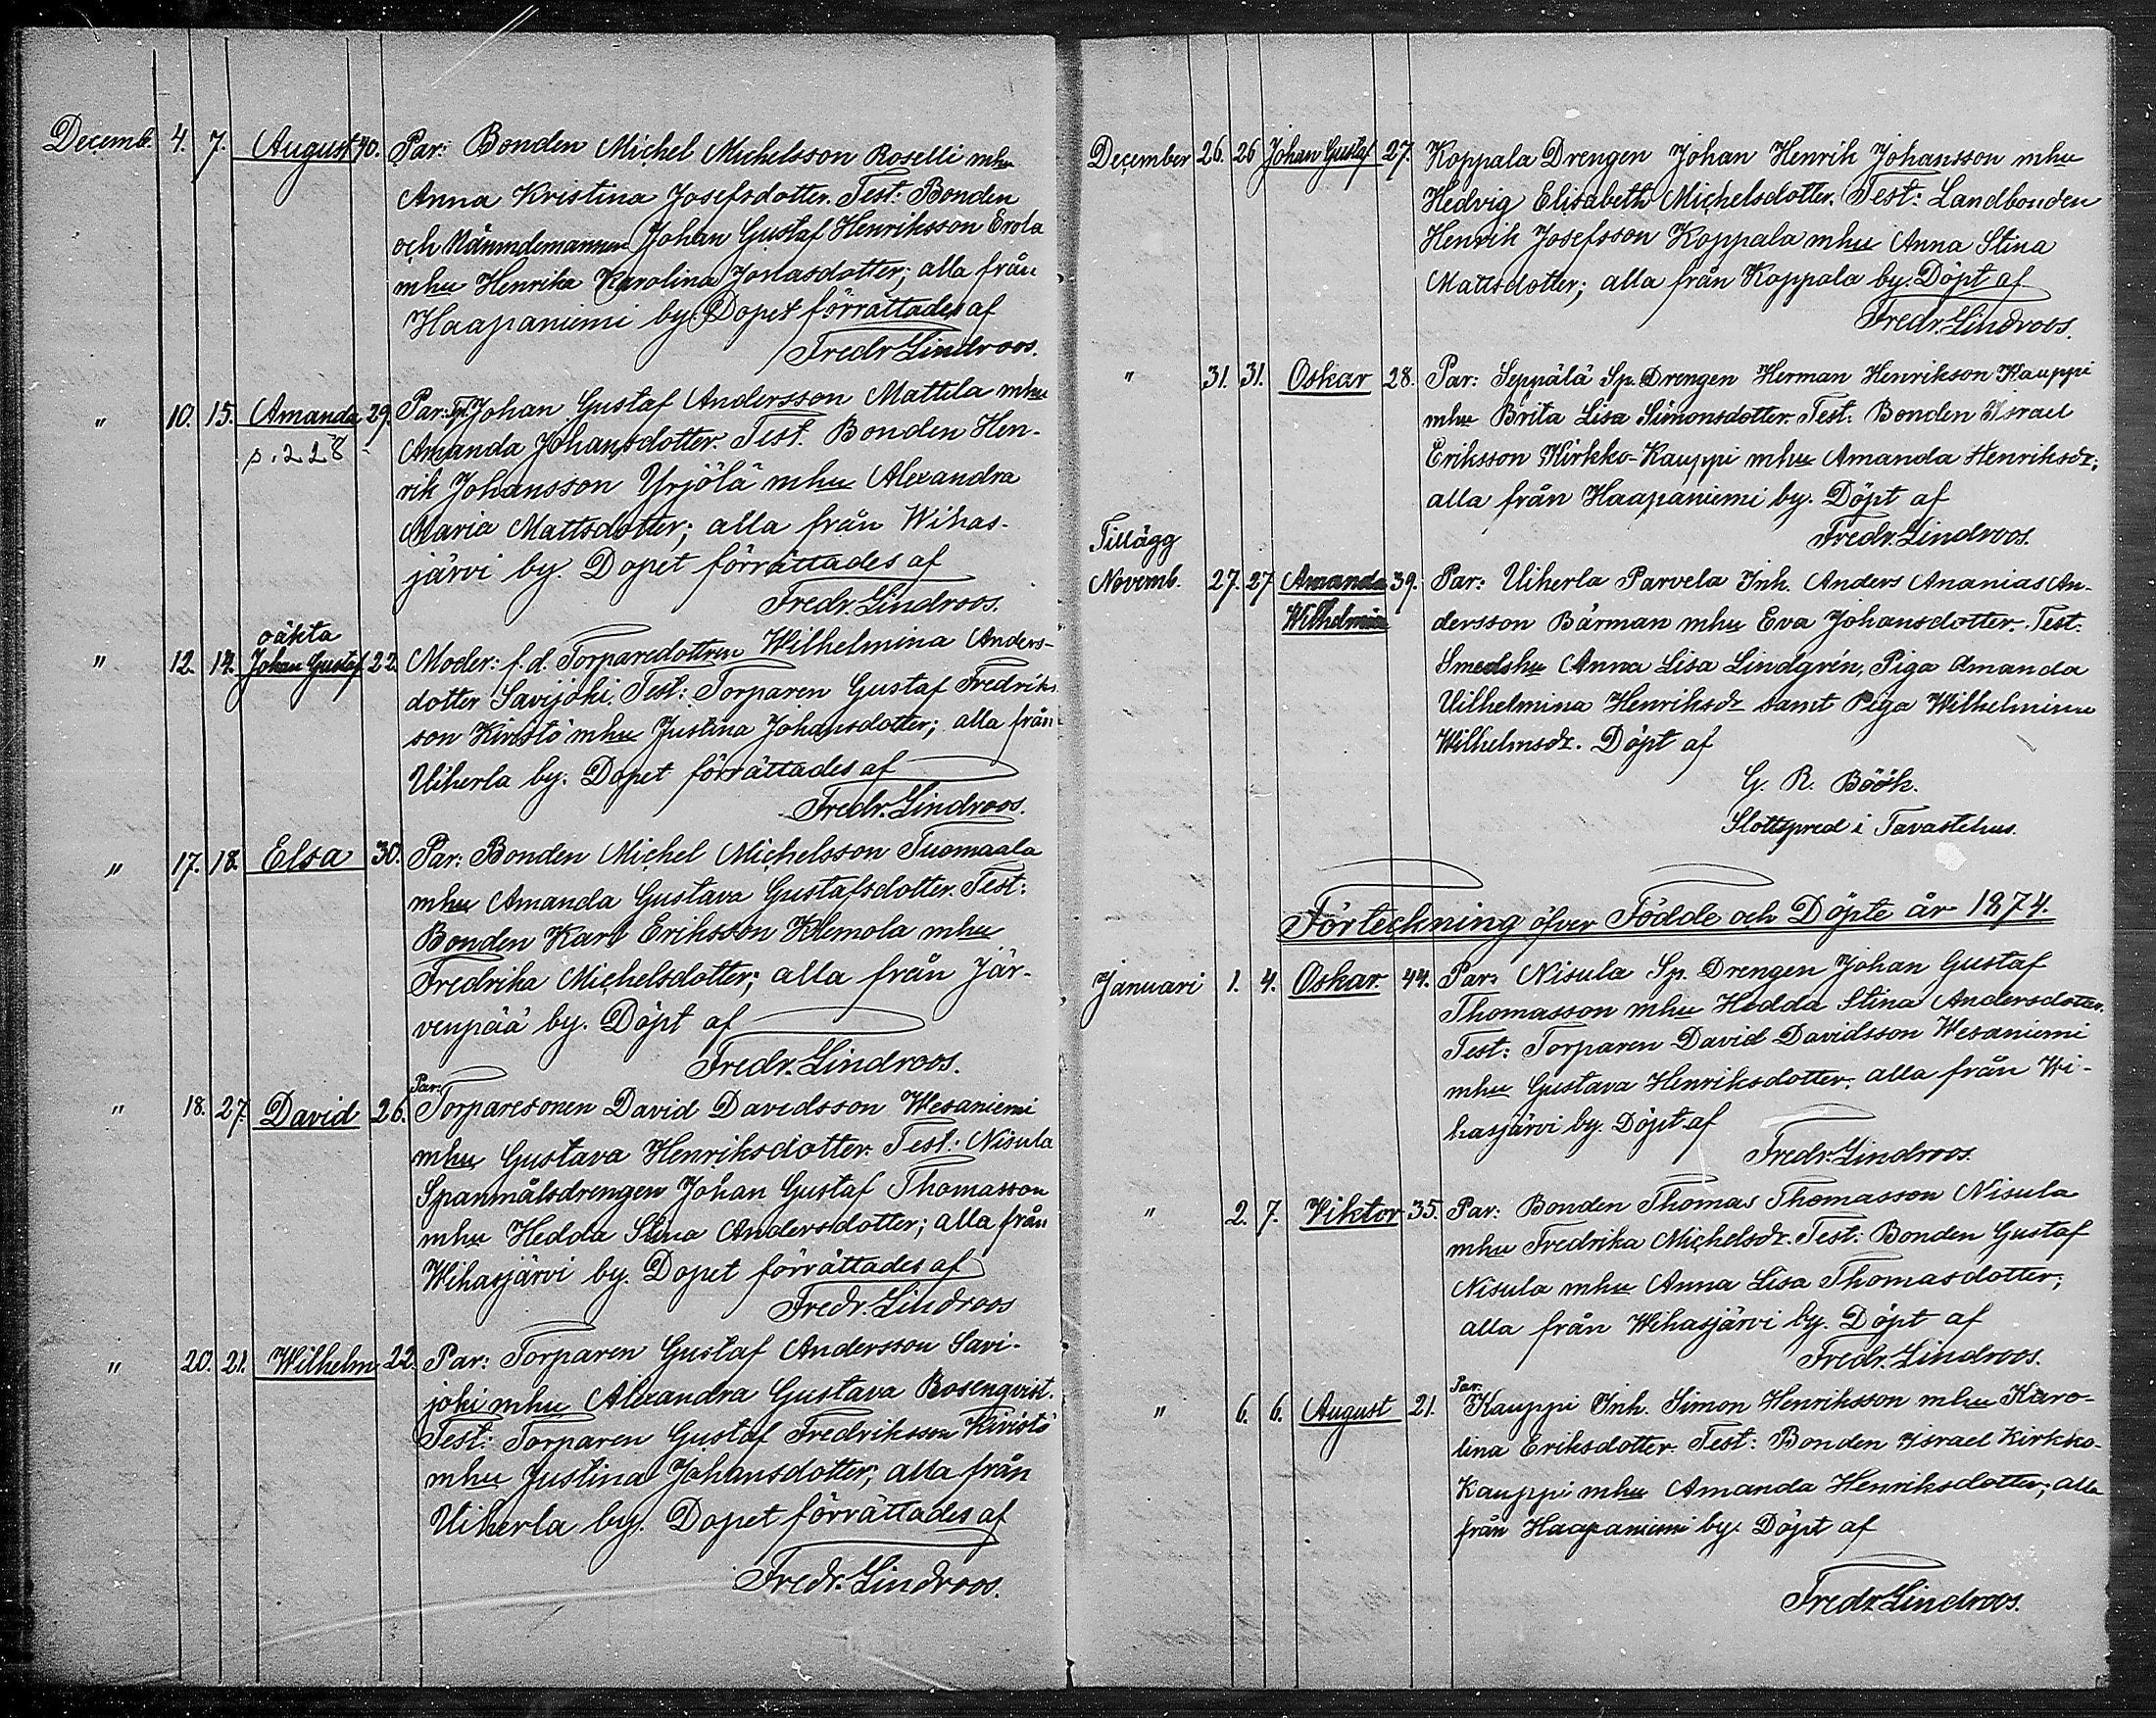 Decemb. 4. 7. August 40. Par: Bonden Michel Michelsson Roselli mhu
Anna Kristina Josefsdotter. Test: Bonden
och Nämndemannen Johan Gustaf Henriksson Erola
mhu Henrika Karolina Jonasdotter; alla från
Haapaniemi by. Dopet förrättades af
Fredr. Lindroos.
" 10. 15. Amanda 29. Par: Johan Gustaf Andersson Mattila mhu
p. 228 Amanda Johansdotter. Test. Bonden Hen-
rik Johansson Yrjölä mhu Alexandra
Maria Mattsdotter; alla från Wihas-
järvi by. Dopet förrättades af
Fredr. Lindroos.
oäkta
" 12. 14. Johan Gustaf 22. Moder: f. d. Torparedottren Wilhelmina Anders-
dotter Savijoki. Test: Torparen Gustaf Fredriks
son Kivistö mhu Justina Johansdotter; alla från
Uiherla by. Dopet förrättades af
Fredr. Lindroos.
" 17. 18. Elsa 30. Par: Bonden Michel Michelsson Tuomaala
mhu Amanda Gustava Gustafsdotter. Test:
Bonden Karl Eriksson Klemola mhu
Fredrika Michelsdotter; alla från Jär-
venpää by. Döpt af
Fredr. Lindroos.
Par:
" 18. 27. David 26. Torparesonen David Davidsson Wesaniemi
mhu Gustava Henriksdotter. Test: Nisula
Spanmålsdrengen Johan Gustaf Thomasson
mhu Hedda Stina Andersdotter; alla från
Wihasjärvi by. Dopet förrättades af
Fredr. Lindroos
" 20. 21. Wilhelm 22. Par: Torparen Gustaf Andersson Savi-
joki mhu Alexandra Gustava Rosenqvist.
Test: Torparen Gustaf Fredriksson Kivistö
mhu Justina Johansdotter; alla från
Uiherla by. Dopet förrättades af
Fredr. Lindroos.
December 26. 26 Johan Gustaf 27. Koppala Drengen Johan Henrik Johansson mhu
Hedvig Elisabeth Michelsdotter. Test: Landbonden
Henrik Josefsson Koppala mhu Anna Stina
Mattsdotter; alla från Koppala by. Döpt af
Fredr. Lindroos.
" 31. 31. Oskar 28. Par: Seppälä Sp. Drengen Herman Henrikson Kauppi
mhu Brita Lisa Simonsdotter. Test. Bonden Israel
Eriksson Kirkko-Kauppi mhu Amanda Henriksdr;
alla från Haapaniemi by. Döpt af
Fredr. Lindroos.
Tillägg
Novemb. 27. 27 Amanda 39. Par: Uiherla Parvela Inh. Anders Ananias An-
Wilhelmina dersson Bärman mhu Eva Johansdotter. Test:
Smedshu Anna Lisa Lindgrén, Piga Amanda
Vilhelmina Henriksdr samt Piga Wilhelmina
Wilhelmsdr. Döpt af
G. R. Böök.
Slottspred i Tavastehus.
Förteckning öfver Födde och Döpte år 1874.
Januari 1. 4. Oskar 44. Par: Nisula Sp. Drengen Johan Gustaf
Thomasson mhu Hedda Stina Andersdotter.
Test: Torparen David Davidsson Wesaniemi
mhu Gustava Henriksdotter. alla från Wi-
hasjärvi by. Döpt af
Fredr. Lindroos.
" 2. 7. Viktor 35. Par: Bonden Thomas Thomasson Nisula
mhu Fredrika Michelsdr. Test: Bonden Gustaf
Nisula mhu Anna Lisa Thomasdotter;
alla från Wihasjärvi by. Döpt af
Fredr. Lindroos.
Par:
" 6. 6. August 21. Kauppi Inh. Simon Henriksson mhu Karo-
lina Eriksdotter. Test: Bonden Israel Kirkko-
Kauppi mhu Amanda Henriksdotter; alla
från Haapaniemi by. Döpt af
Fredr. Lindroos.